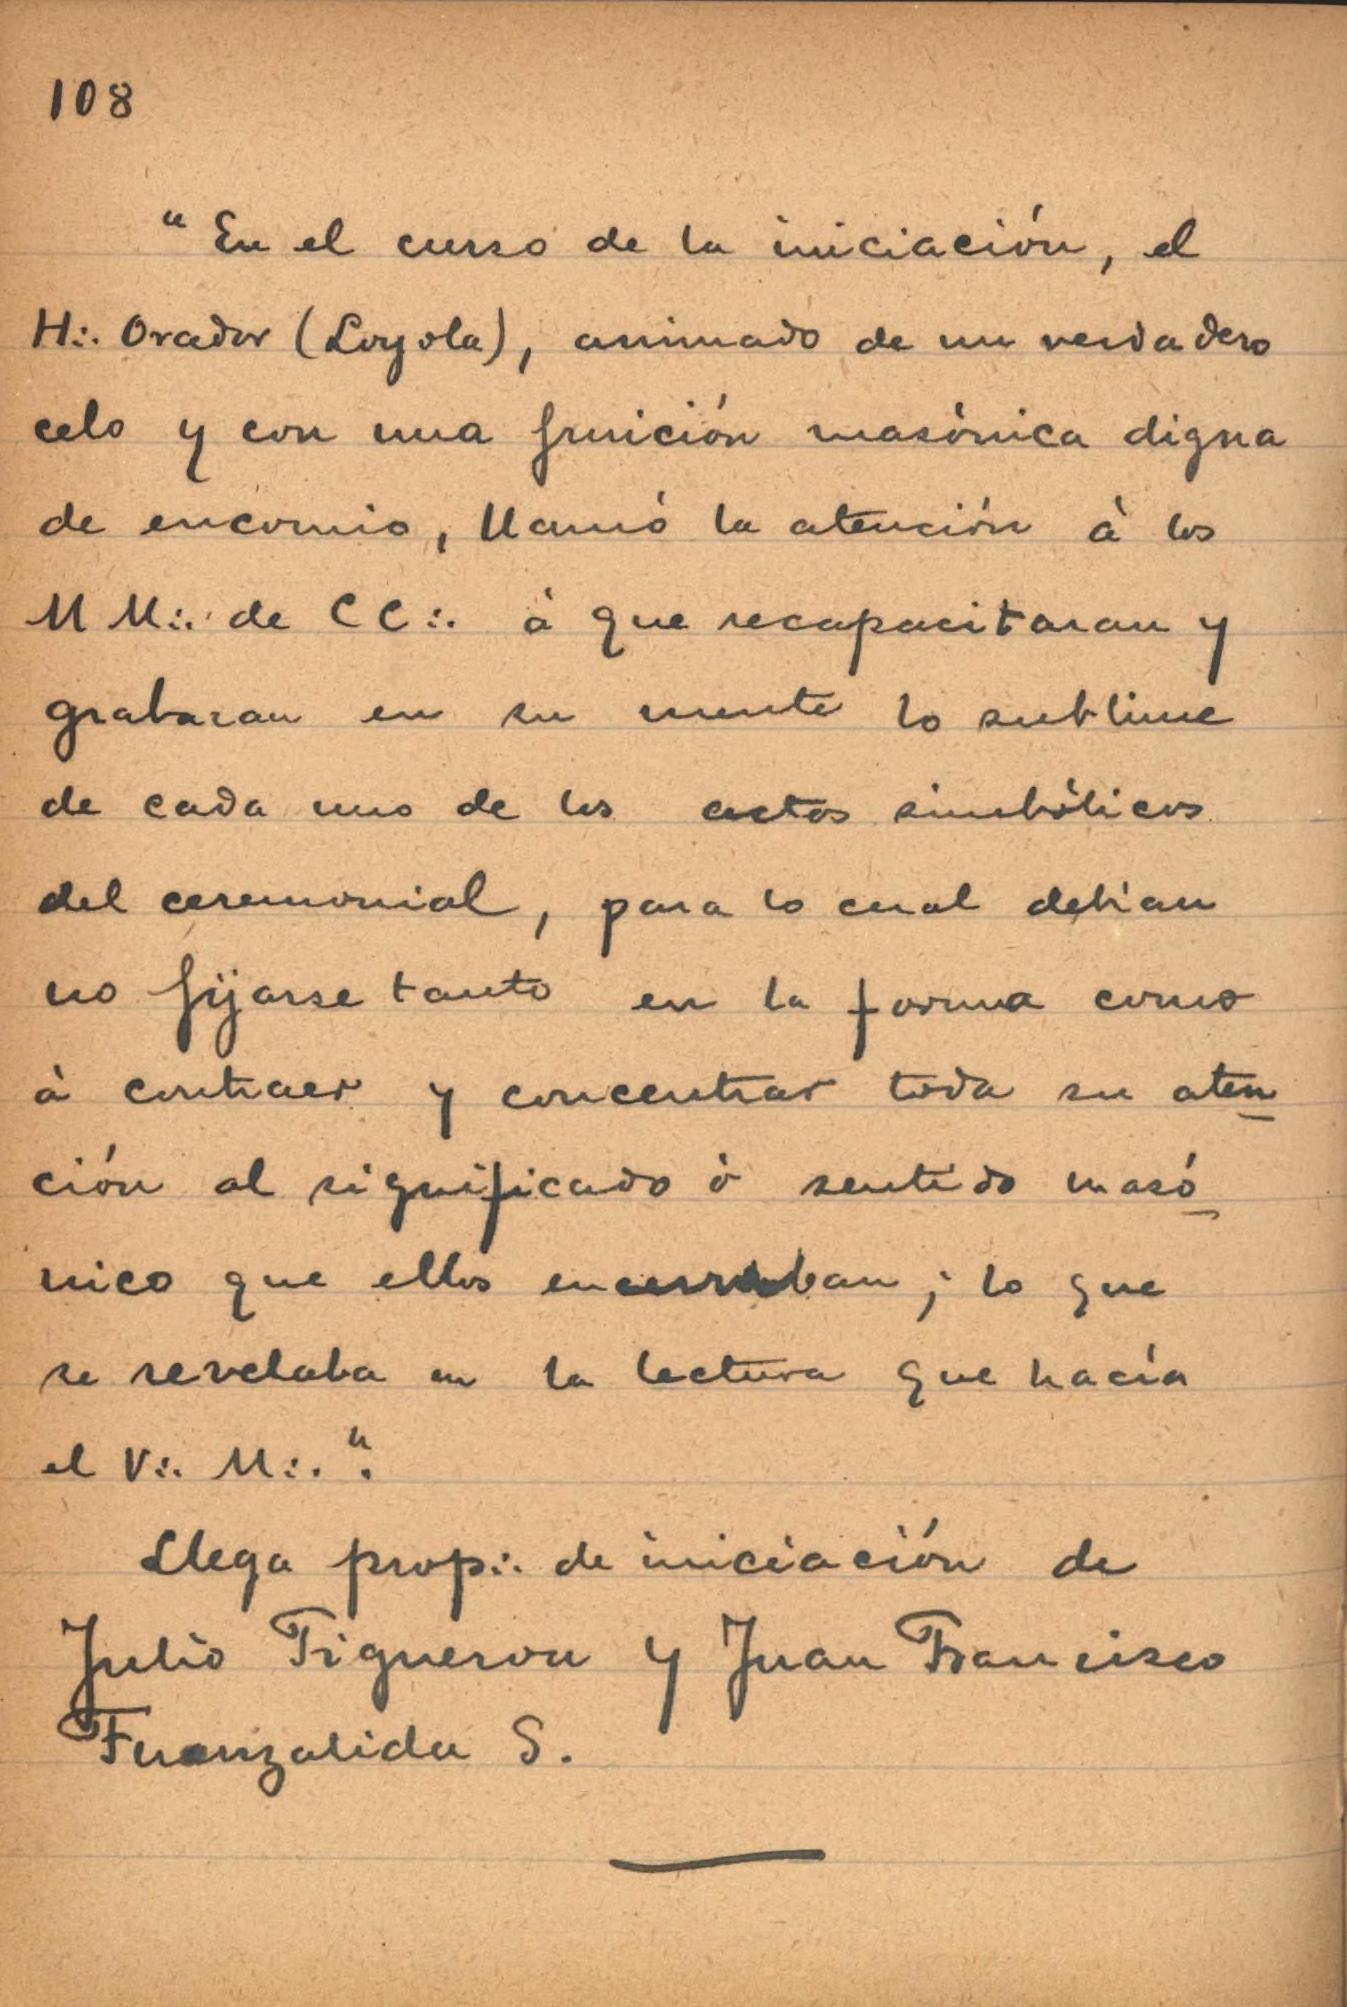 108
“En el curso de la iniciación, el
H∴ Orador (Loyola), animado de un verdadero
celo y con una fruición masónica digna
de encomio, llamó la atención á los
M M∴ de C C∴ á que recapacitaran y
grabaran en su mente lo sublime
de cada uno de los actos simbólicos
del ceremonial, para lo cual debían
no fijarse tanto en la forma como
á contraer y concentrar toda su aten
ción al significado ó sentido masó
nico que ellos encerraban; lo que
se revelaba en la lectura que hacía
el V∴ M∴”.
Llega prop∴ de iniciación de
Julio Figueroa y Juan Francisco
Fuenzalida S.